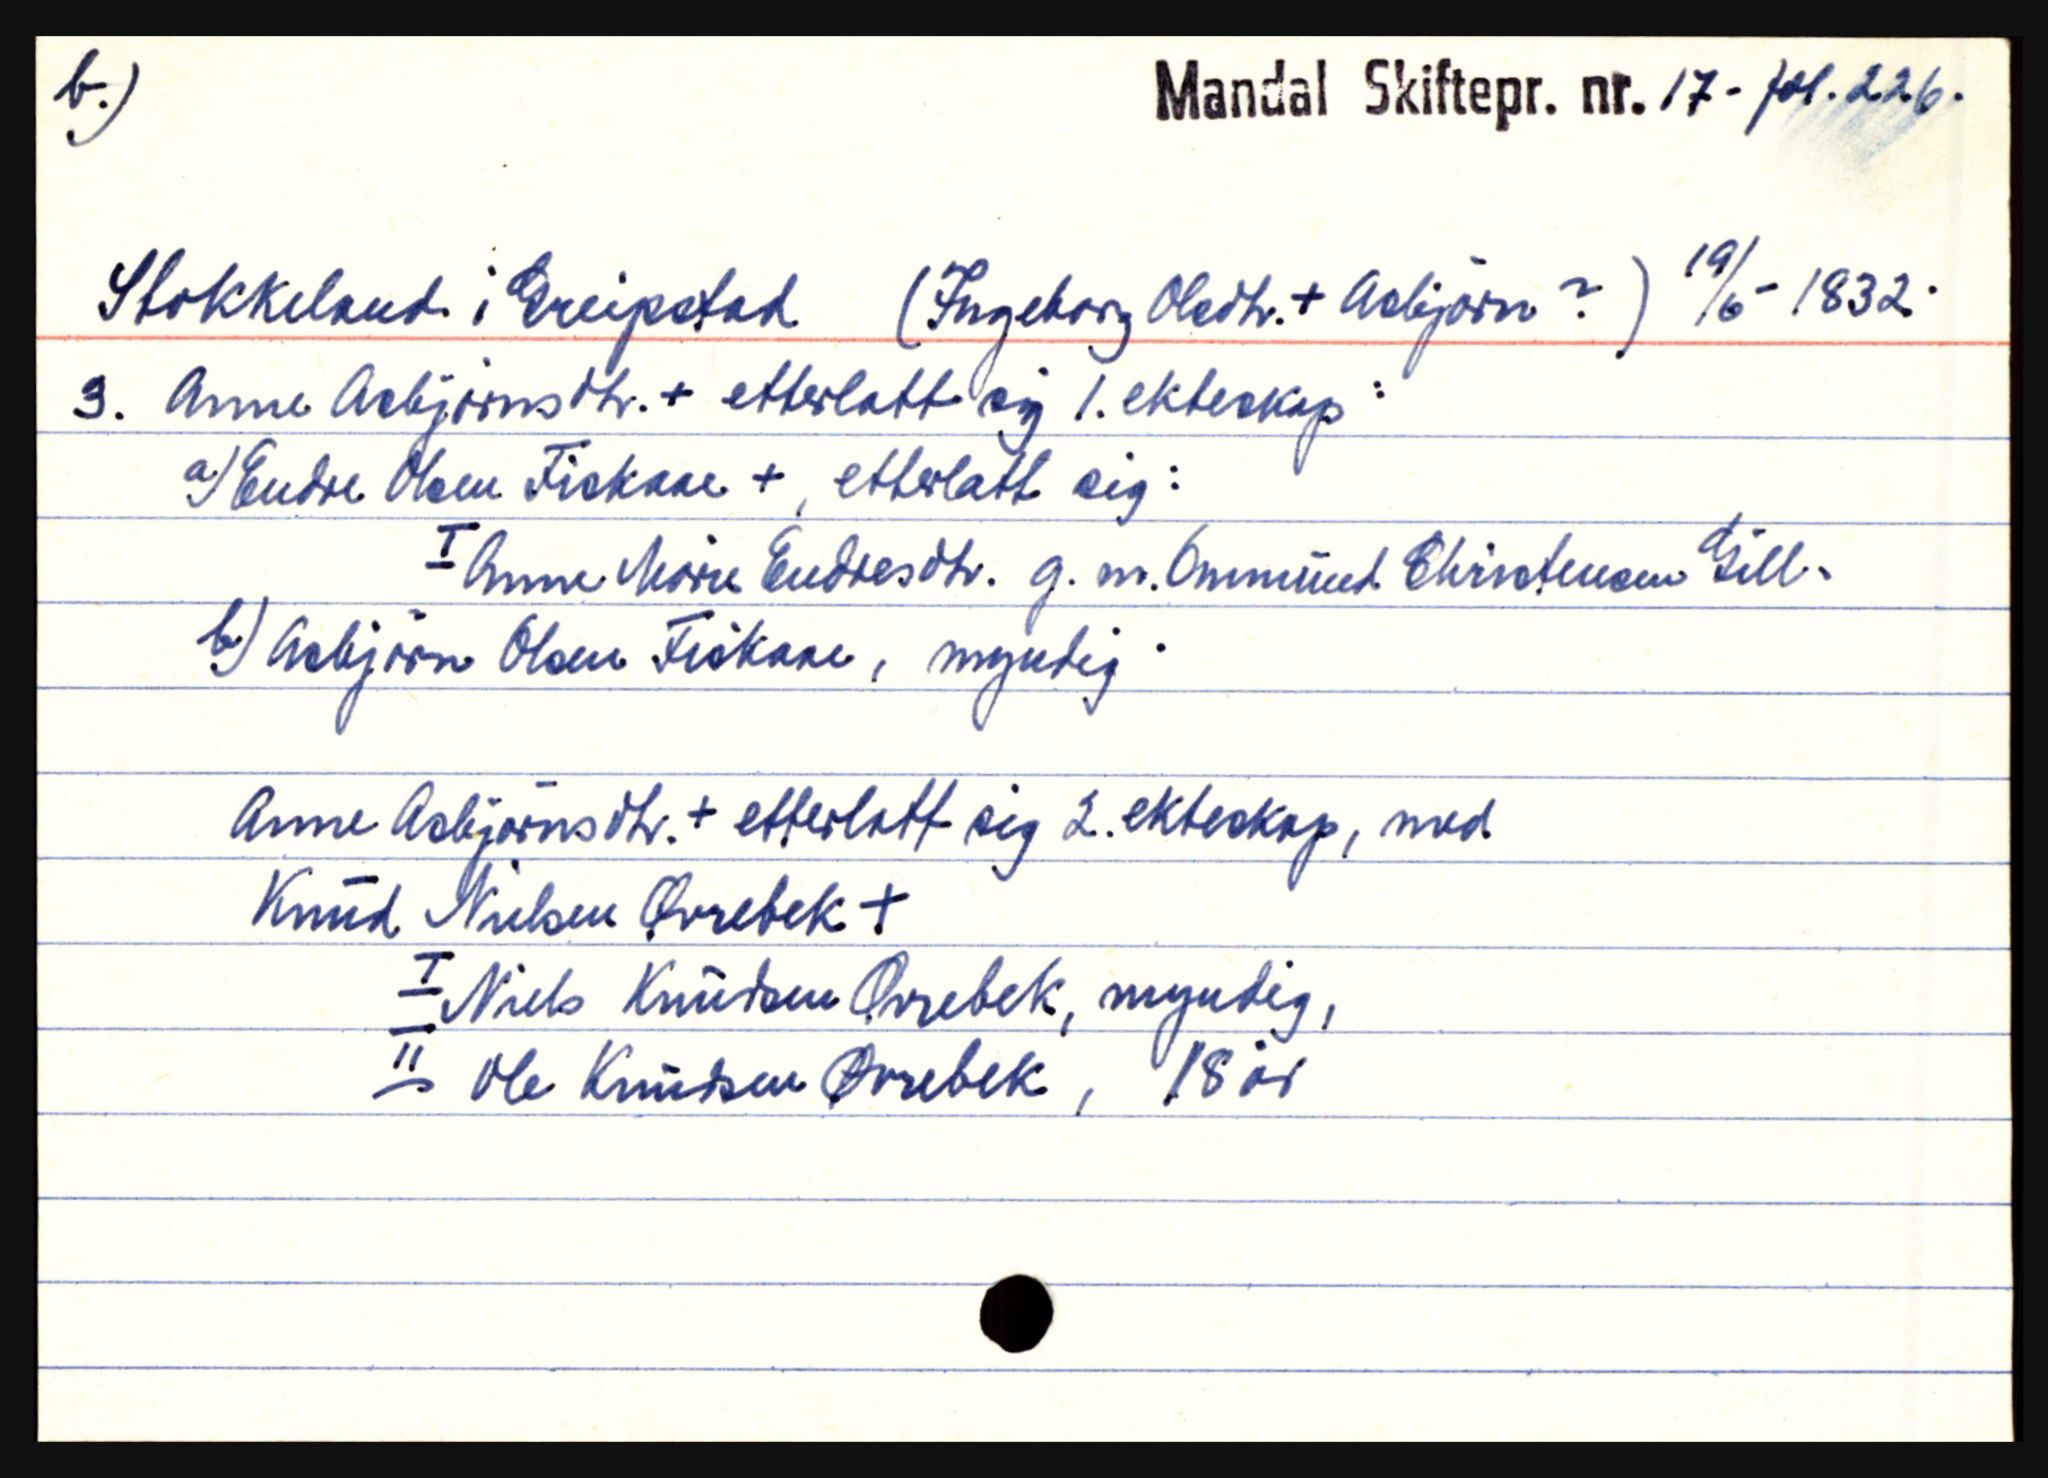 b.)
Mandal Skiftepr. nr. 17- fol. 226.
Stokkeland i Greipstad (Ingeborg Olsdtr. + Asbjörn ? ) 19/6 - 1832.
3. Anne Asbjörnsdtr. + etterlatt sig 1. ekteskap:
a) Endre Olsen Fiskaae +, etterlatt sig:
I Anne Marie Endresdtr. g. m. Ommund Christensen Gill.
b) Asbjörn Olsen Fiskaae, myndig.
Anne Asbjörnsdtr. + etterlatt sig 2. ekteskap, med
Knud Nielsen Ørrebek +
I Niels Knudsen Ørrebek, myndig,
II Ole Knudsen Ørrebek, 18 år